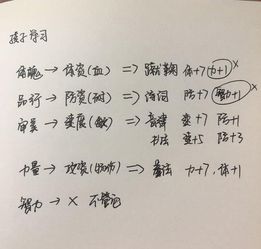 孩子学习
体魄 → 体资(血) => 蹴鞠 体+7 力+1 ×
品行 → 防资(耐) => 诗词 防+7 智力+1 ×
审美 → 速资(敏) => 音律 速+7 防+1
书法 速+5 防+3
力量 → 攻资 => 力+7, 体+1
智力 → × 不管它